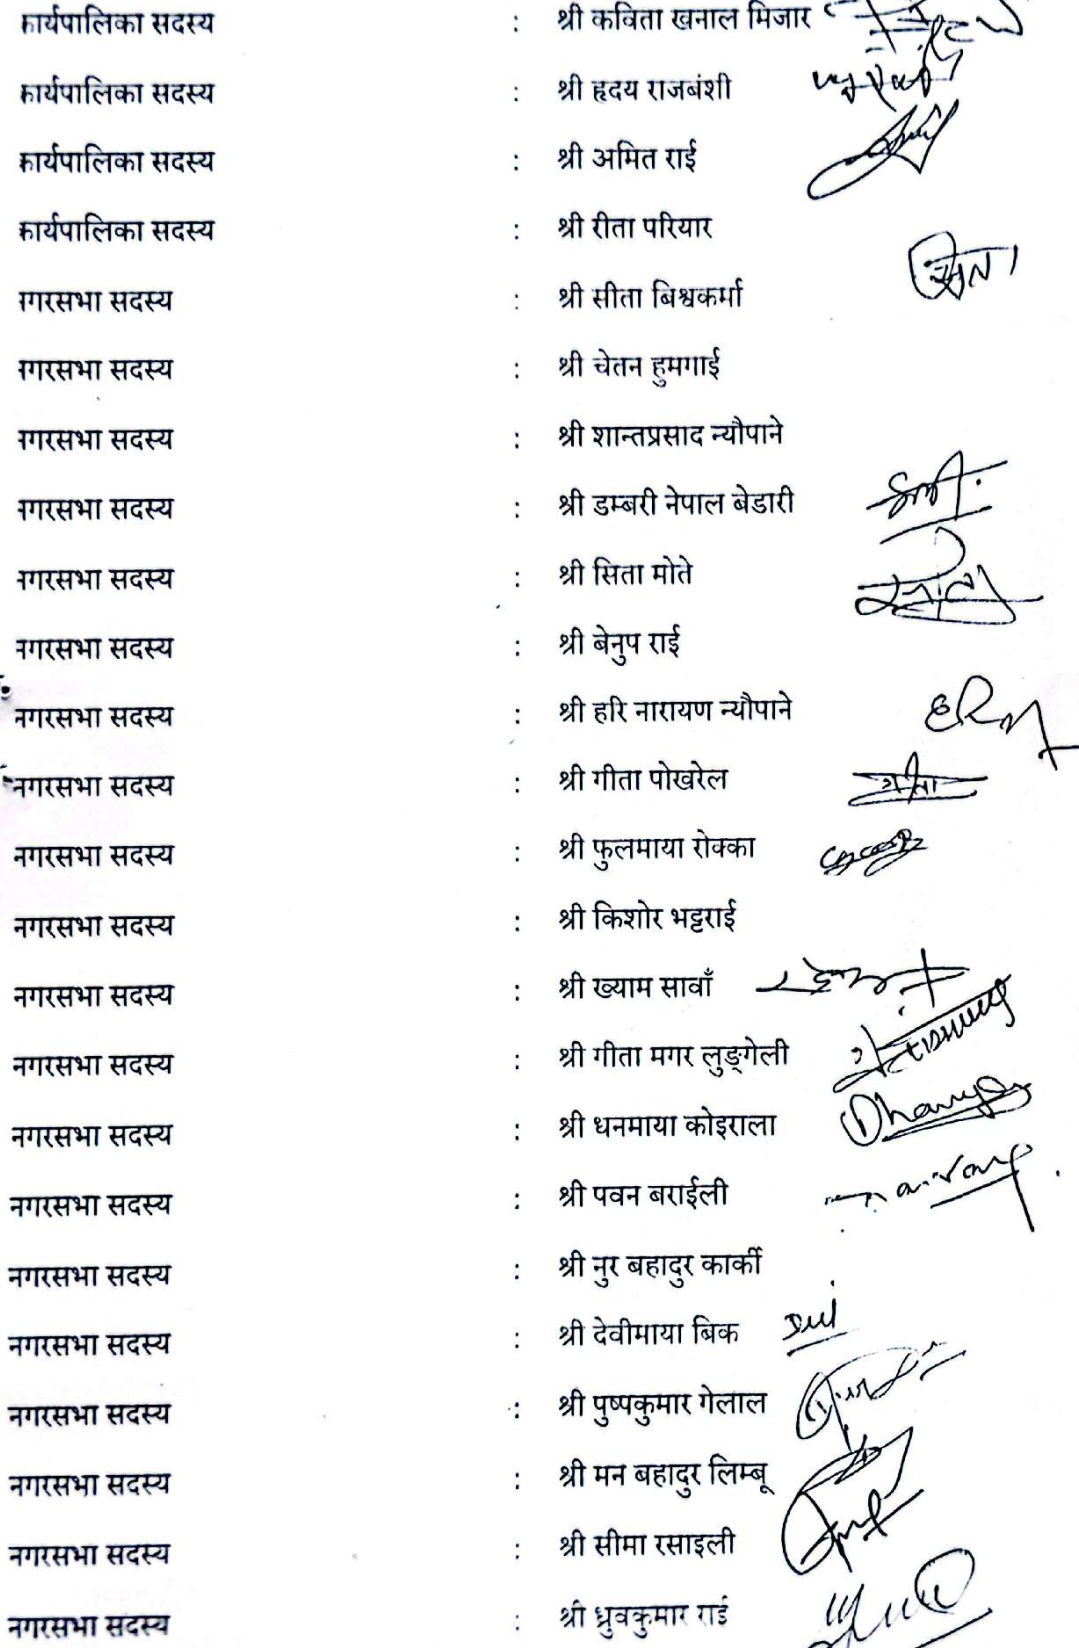 कार्यपालिका सदस्य : श्री कविता खनाल मिजार
कार्यपालिका सदस्य : श्री हृदय राजबंशी
कार्यपालिका सदस्य : श्री अमित राई
कार्यपालिका सदस्य : श्री रीता परियार
नगरसभा सदस्य : श्री सीता बिश्वकर्मा
नगरसभा सदस्य : श्री चेतन हुमगाई
नगरसभा सदस्य : श्री शान्तप्रसाद न्यौपाने
नगरसभा सदस्य : श्री डम्बरी नेपाल बेडारी
नगरसभा सदस्य : श्री सिता मोते
नगरसभा सदस्य : श्री बेनुप राई
नगरसभा सदस्य : श्री हरि नारायण न्यौपाने
नगरसभा सदस्य : श्री गीता पोखरेल गीता
नगरसभा सदस्य : श्री फुलमाया रोक्का
नगरसभा सदस्य : श्री किशोर भट्टराई
नगरसभा सदस्य : श्री ख्याम सावाँ
नगरसभा सदस्य : श्री गीता मगर लुङ्गेली
नगरसभा सदस्य : श्री धनमाया कोइराला
नगरसभा सदस्य : श्री पवन बराईली
नगरसभा सदस्य : श्री नुर बहादुर कार्की
नगरसभा सदस्य : श्री देवीमाया बिक
नगरसभा सदस्य : श्री पुष्पकुमार गेलाल
नगरसभा सदस्य : श्री मन बहादुर लिम्बू
नगरसभा सदस्य : श्री सीमा रसाइली
नगरसभा सदस्य : श्री ध्रुवकुमार राई